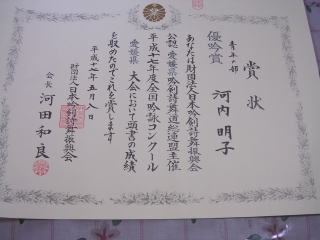 賞状
青年の部
優吟賞
河内明子
あなたは財団法人日本吟剣詩舞振興会
公認愛媛県吟剣詩舞道総連盟主催
平成十七年度全国吟詠コンクール
愛媛県大会において頭書の成績
を収めたのでこれを賞します
平成十七年五月八日
財団法人日本吟剣詩舞振興会
会長 河田和良